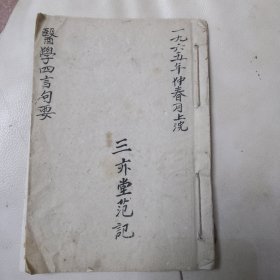 一九六五年仲春月上浣
三亦堂范記
醫學四言句要